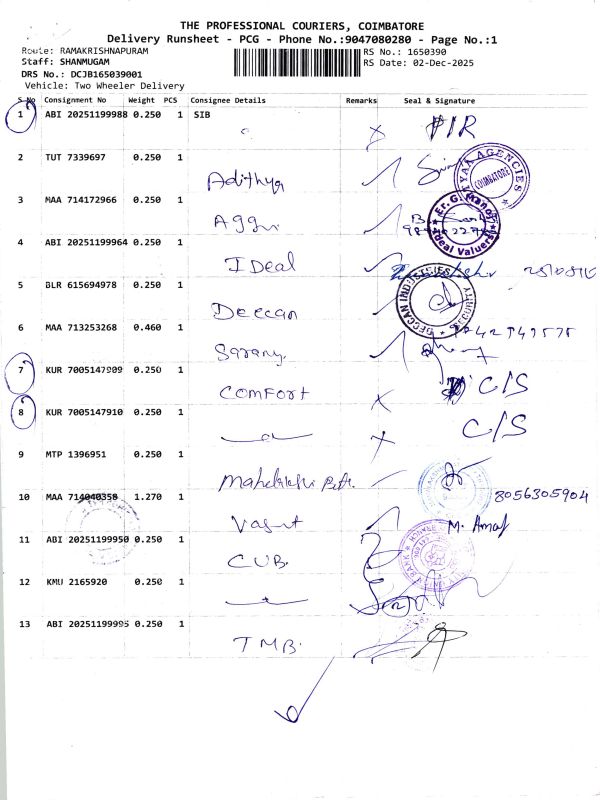 THE PROFESSIONAL COURIERS, COIMBATORE
Delivery Runsheet - PCG - Phone No.:9047080280 - Page No.:1
Route: RAMAKRISHNAPURAM
RS No.: 1650390
Staff: SHANMUGAM
RS Date: 02-Dec-2025
DRS No.: DCJB165039001
Vehicle: Two Wheeler Delivery
S No Consignment No Weight PCS Consignee Details Remarks Seal & Signature
1 ABI 20251199988 0.250 1 SIB
2 TUT 7339697 0.250 1
Adithya
AGENCIES
COIMBATORE
3 MAA 714172966 0.250 1
Er. G. Manoj
Ideal Valuers
4 ABI 20251199964 0.250 1
IDeal
5 BLR 615694978 0.250 1
Deccan
DECCAN INDUSTRIES
SECURITY
6 MAA 713253268 0.460 1
7 KUR 7005147909 0.250 1
COMFORT
C/S
8 KUR 7005147910 0.250 1
C/S
9 MTP 1396951 0.250 1
10 MAA 714040358 1.270 1
8056305904
Vasant
11 ABI 20251199950 0.250 1
CUB.
12 KMU 2165920 0.250 1
13 ABI 20251199995 0.250 1
TMB.